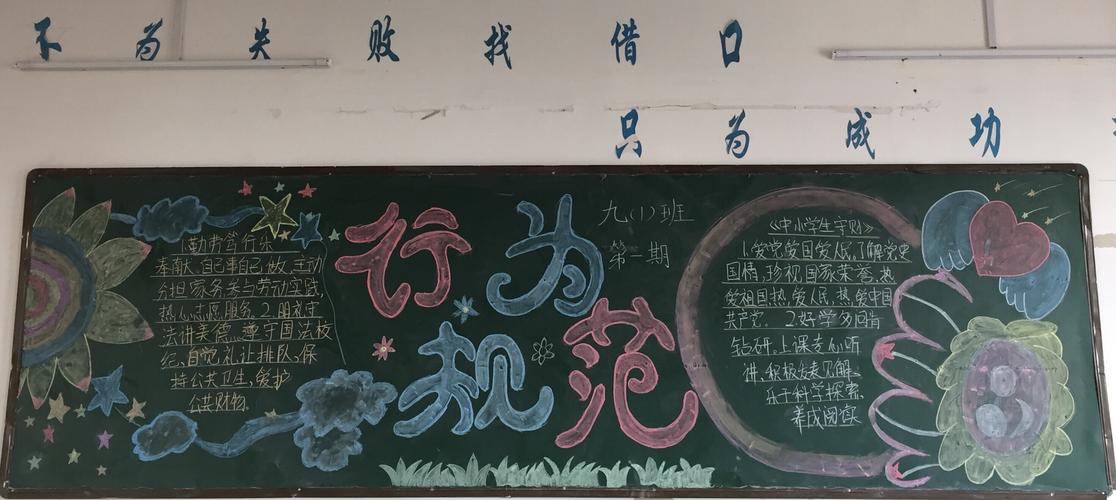 不为失败找借口
只为成功
行为
规范
九(1)班
第一期
1.勤劳笃行乐
奉献、自己事自己做,主动
分担家务参与劳动实践,
热心志愿服务。2.明礼守
法讲美德。遵守国法校
纪,自觉礼让排队、保
持公共卫生,爱护
公共财物。
《中小学生守则》
1.爱党爱国爱人民。了解党史
国情,珍视国家荣誉,热
爱祖国热爱人民,热爱中国
共产党。2.好学多问肯
钻研。上课专心听
讲,积极发表见解、
乐于科学探索、
养成阅读